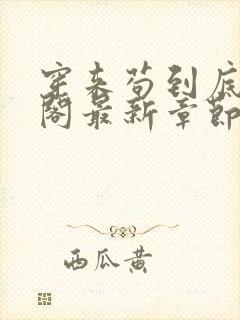 穿来苟到底
阁最新章节
西瓜黄